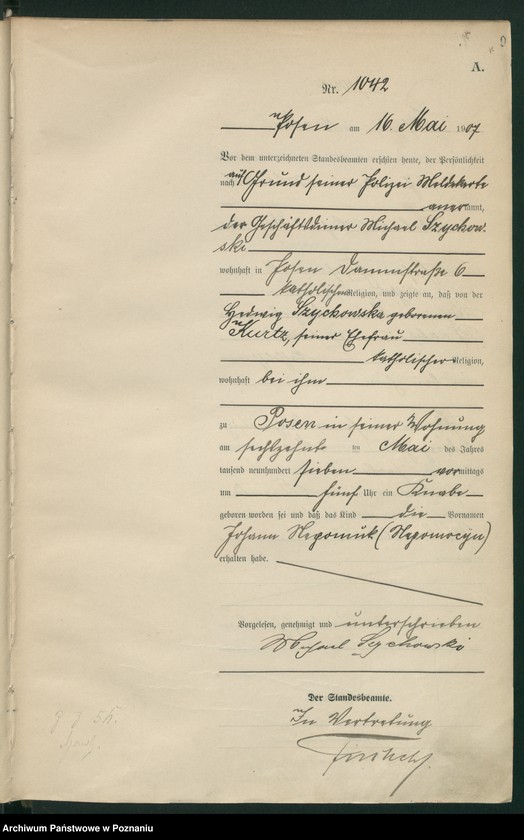 A.
Nr. 1042
Posen am 16. Mai 1907
Vor dem unterzeichneten Standesbeamten erschien heute, der Persönlichkeit
nach auf Grund seiner Polizei Meldekarte
anerkannt,
der Geschäftsdiener Michael Szyckow-
ski
wohnhaft in Posen Dammstraße 6
katholischer Religion, und zeigte an, daß von der
Hedwig Szyckowska geborenen
Kurtz, seiner Ehefrau
katholischer Religion,
wohnhaft bei ihm
zu Posen in seiner Wohnung
am sechzehnten Mai des Jahres
tausend neunhundert sieben vormittags
um fünf Uhr ein Knabe
geboren worden sei und daß das Kind die Vornamen
Johann Nepomuk (Nepomocyn)
erhalten habe.
Vorgelesen, genehmigt und unterschrieben
Michael Sychowski
Der Standesbeamte.
In Vertretung
Archiwum Państwowe w Poznaniu